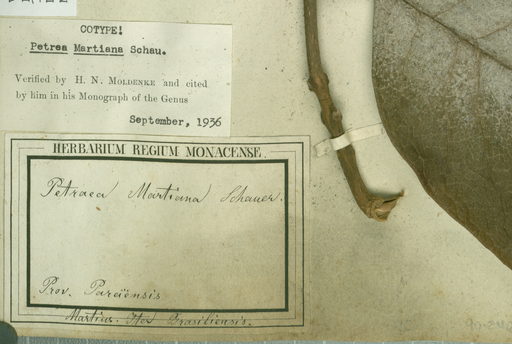 COTYPE!
Petrea Martiana Schau.
Verified by H. N. MOLDENKE and cited
by him in his Monograph of the Genus
September, 1936
HERBARIUM REGIUM MONACENSE.
Petraea Martiana Schauer.
Prov. Paraënsis
Martius. Iter Brasiliensis.